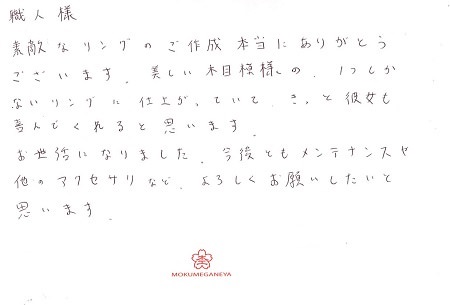 職人様
素敵なリングのご作成本当にありがとう
ございます。美しい木目模様の、1つしか
ないリングに仕上がっていて、きっと彼女も
喜んでくれると思います。
お世話になりました。今後ともメンテナンスや
他のアクセサリなど、よろしくお願いしたいと
思います。
MOKUMEGANEYA